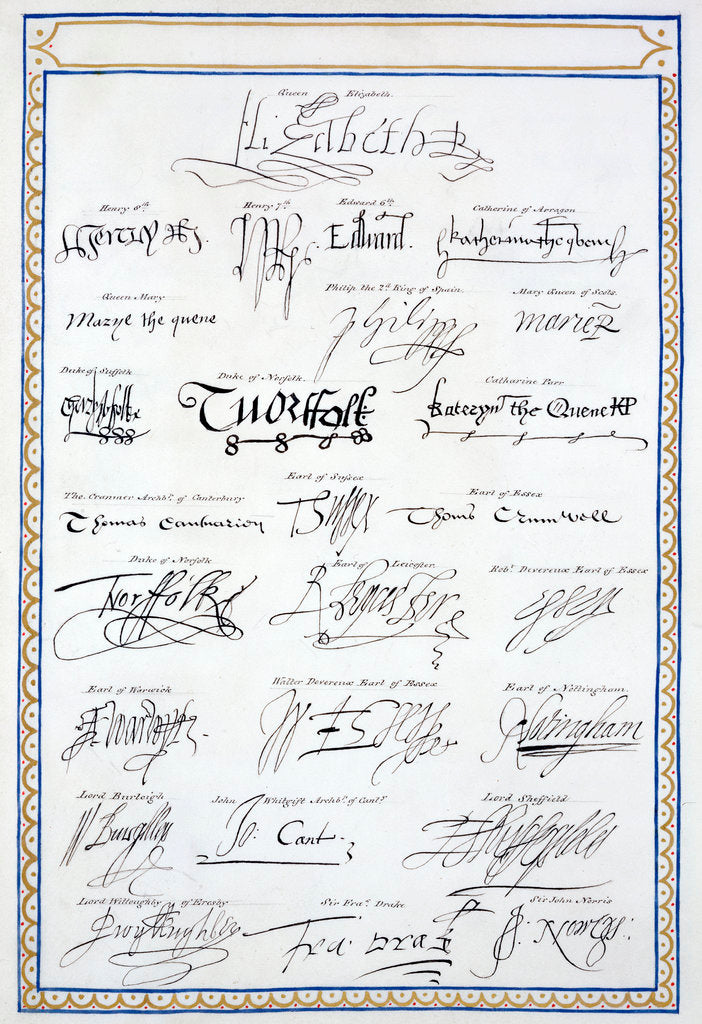 Queen Elizabeth.
Elizabeth R
Henry 8th. Henry 7th. Edward 6th. Catherine of Arragon
Henry R. HR Edward. Katherina the qwene
Queen Mary Philip the 2d. King of Spain. Mary Queen of Scots.
Marye the quene Philipp marie R
Duke of Suffolk Duke of Norfolk. Catharine Parr
T Norffolk Kateryn the Quene KP
Tho. Cranmer Archbp. of Canterbury Earl of Sussex Earl of Essex
Thomas Cantuarien T Sussex Thoms Crumwell
Duke of Norfolk Earl of Leicester. Robt. Devereux Earl of Essex
T Norffolk R Leycester Essex
Earl of Warwick Walter Devereux Earl of Essex Earl of Nottingham.
W Essex Notingham
Lord Burleigh John Whitgift Archbp. of Canty. Lord Sheffield
W Burghley Jo: Cant E Sheffeilde
Lord Willoughby of Eresby Sir Fras. Drake Sir John Norris
P wyllughby Fra: Drak J: Norreys: